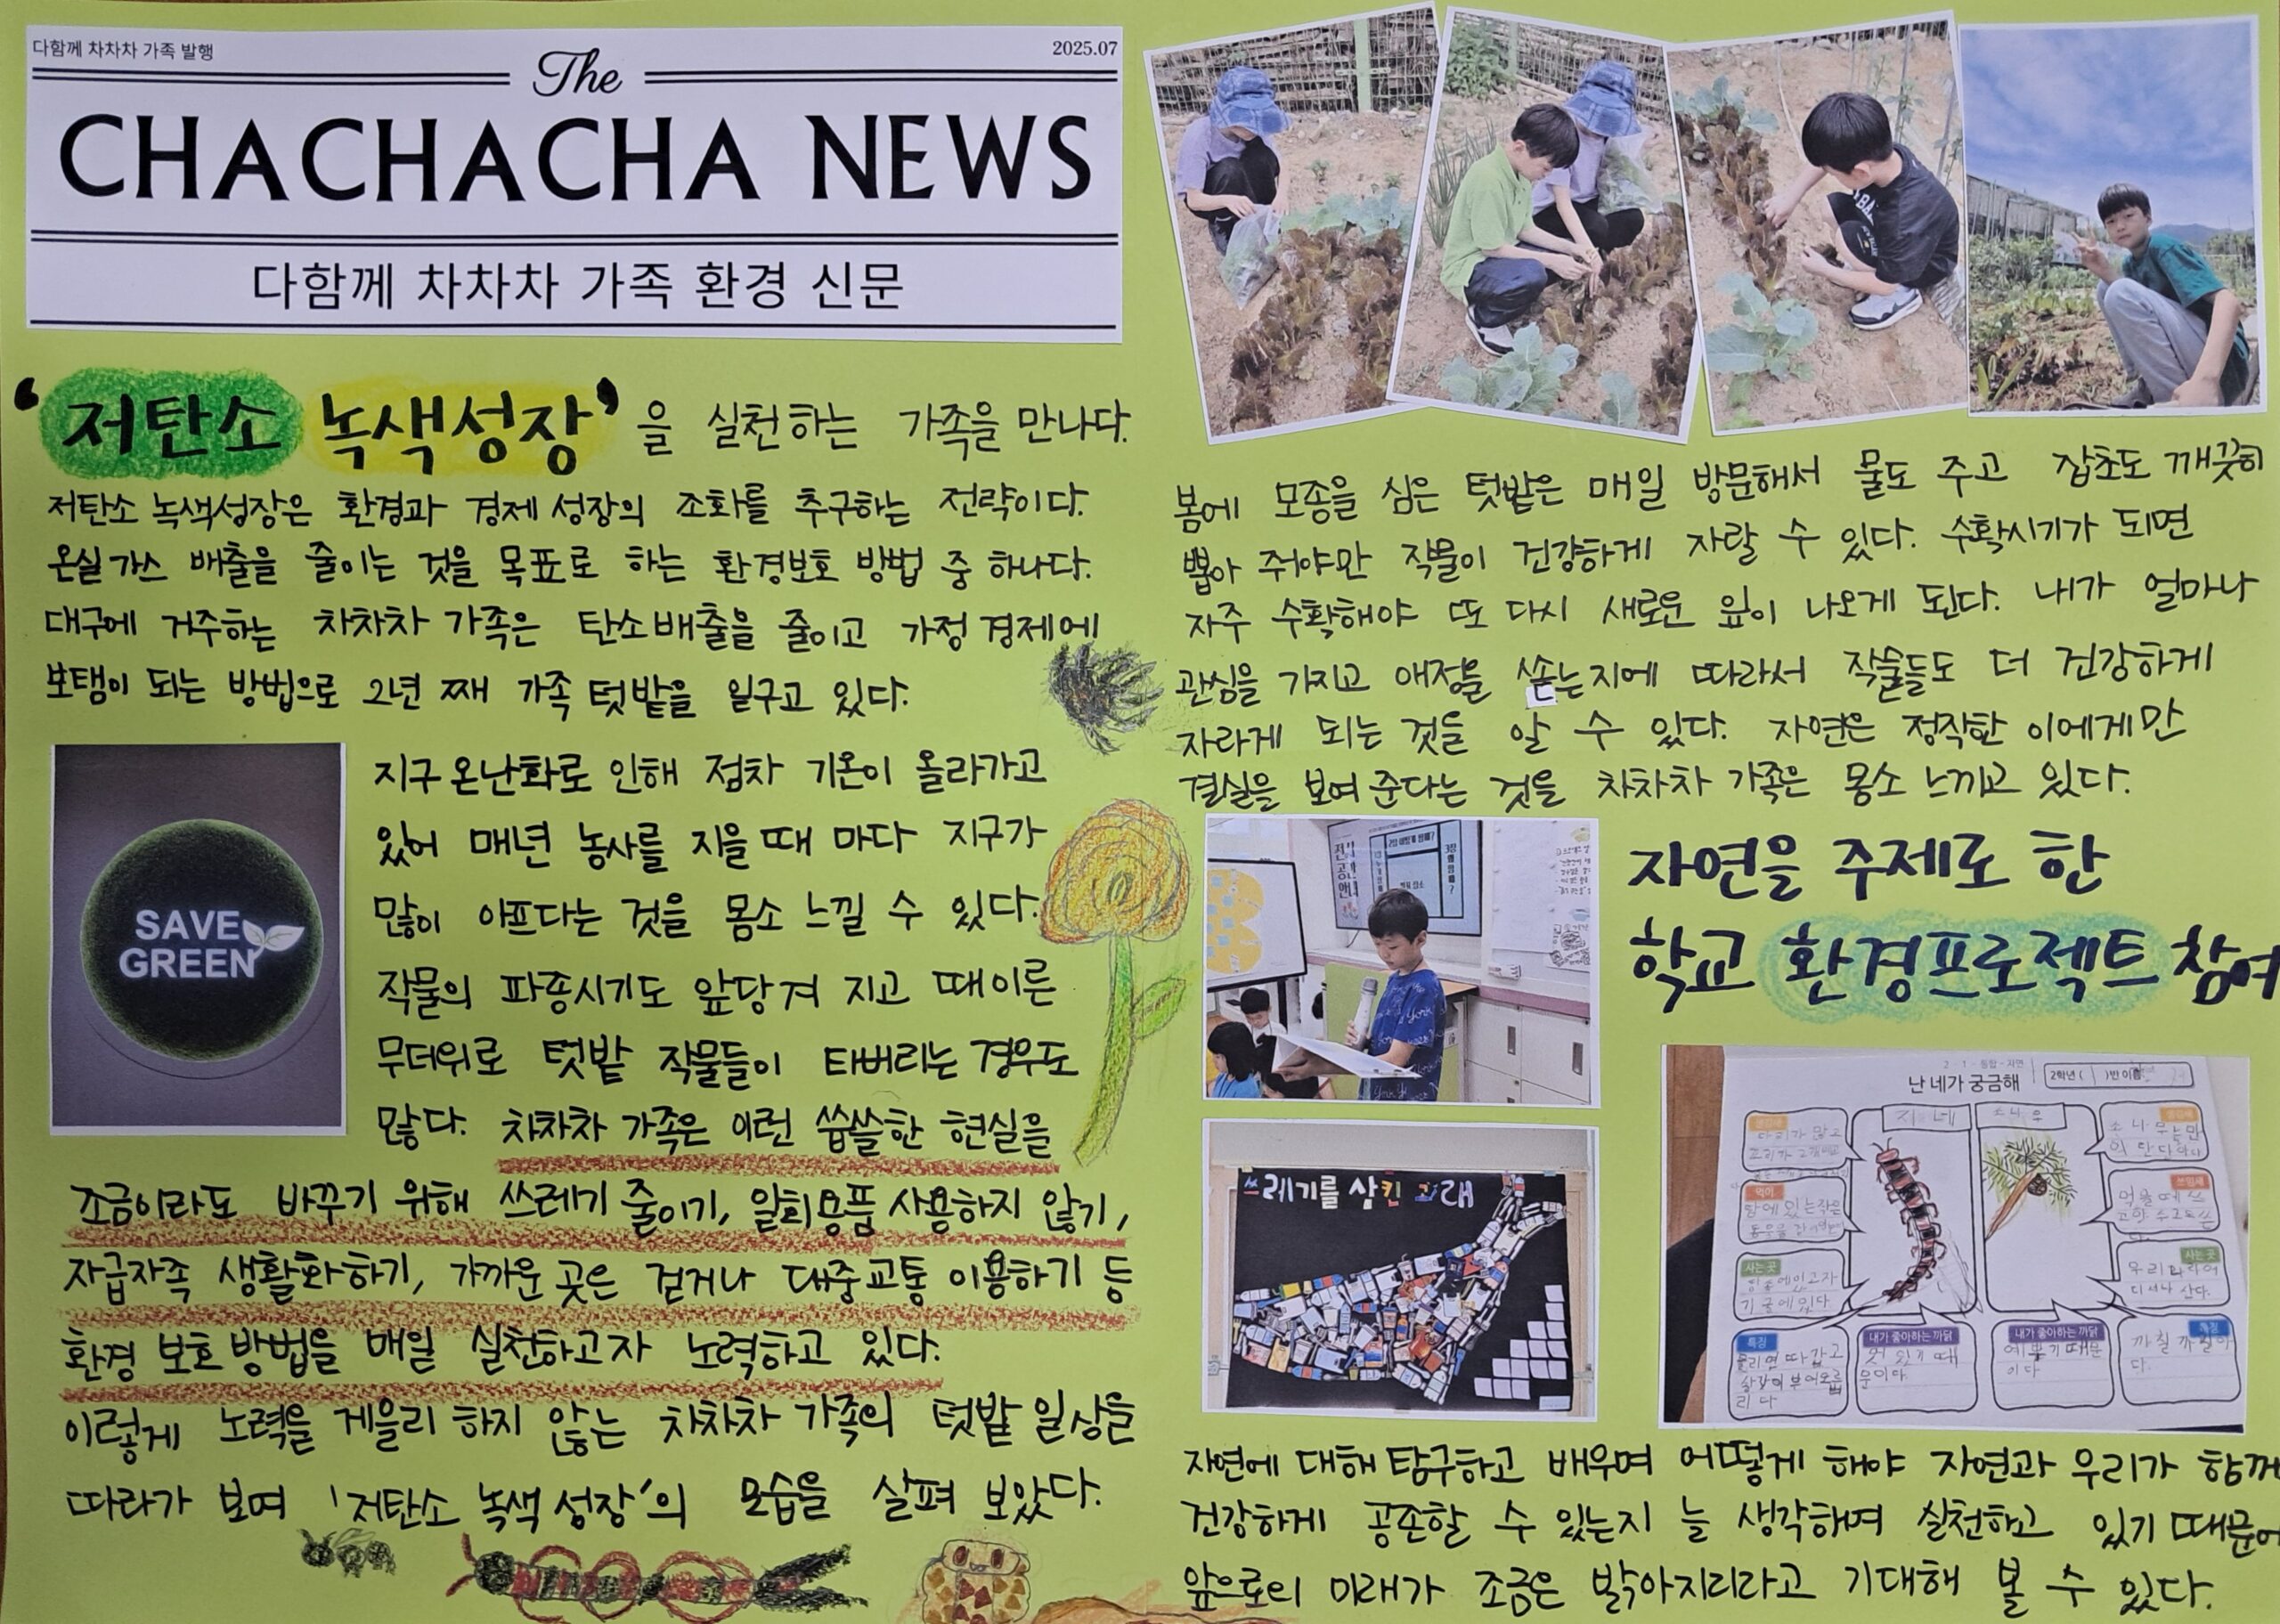 다함께 차차차 가족 발행
2025.07
The
CHACHACHA NEWS
다함께 차차차 가족 환경 신문
'저탄소 녹색성장'을 실천하는 가족을 만나다.
저탄소 녹색성장은 환경과 경제 성장의 조화를 추구하는 전략이다.
온실가스 배출을 줄이는 것을 목표로 하는 환경보호 방법 중 하나다.
대구에 거주하는 차차차 가족은 탄소배출을 줄이고 가정 경제에
보탬이 되는 방법으로 2년 째 가족 텃밭을 일구고 있다.
SAVE
GREEN
지구 온난화로 인해 점차 기온이 올라가고
있어 매년 농사를 지을 때 마다 지구가
많이 아프다는 것을 몸소 느낄 수 있다.
작물의 파종시기도 앞당겨 지고 때이른
무더위로 텃밭 작물들이 타버리는 경우도
많다. 차차차 가족은 이런 씁쓸한 현실을
조금이라도 바꾸기 위해 쓰레기 줄이기, 일회용품 사용하지 않기,
자급자족 생활화하기, 가까운 곳은 걷거나 대중교통 이용하기 등
환경 보호 방법을 매일 실천하고자 노력하고 있다.
이렇게 노력을 게을리 하지 않는 차차차 가족의 텃밭 일상을
따라가 보며 '저탄소 녹색 성장'의 모습을 살펴 보았다.
봄에 모종을 심은 텃밭은 매일 방문해서 물도 주고 잡초도 깨끗히
뽑아 주어야만 작물이 건강하게 자랄 수 있다. 수확시기가 되면
자주 수확해야 또 다시 새로운 잎이 나오게 된다. 내가 얼마나
관심을 가지고 애정을 쏟는지에 따라서 작물들도 더 건강하게
자라게 되는 것을 알 수 있다. 자연은 정직한 이에게만
결실을 보여 준다는 것을 차차차 가족은 몽소 느끼고 있다.
자연을 주제로 한
학교 환경프로젝트 참여
쓰레기를 삼킨 고래
2-1-통합-자연
난 네가 궁금해
2학년 ( )반 이름
지네
소나무
다리가 많고
먹이
땅에 있는 작은
사는 곳
특징
물리면 따갑고
내가 좋아하는 까닭
멋 있기 때
문이다
내가 좋아하는 까닭
예쁘기 때문
이다
쓰임새
사는 곳
특징
까칠까칠하
다.
자연에 대해 탐구하고 배우며 어떻게 해야 자연과 우리가 함께
건강하게 공존할 수 있는지 늘 생각하며 실천하고 있기 때문에
앞으로의 미래가 조금은 밝아지리라고 기대해 볼 수 있다.